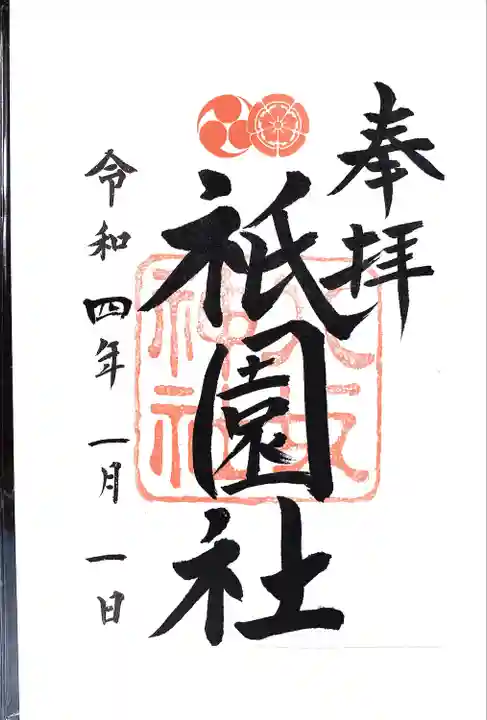 奉拝
祇園社
令和四年一月一日
神社